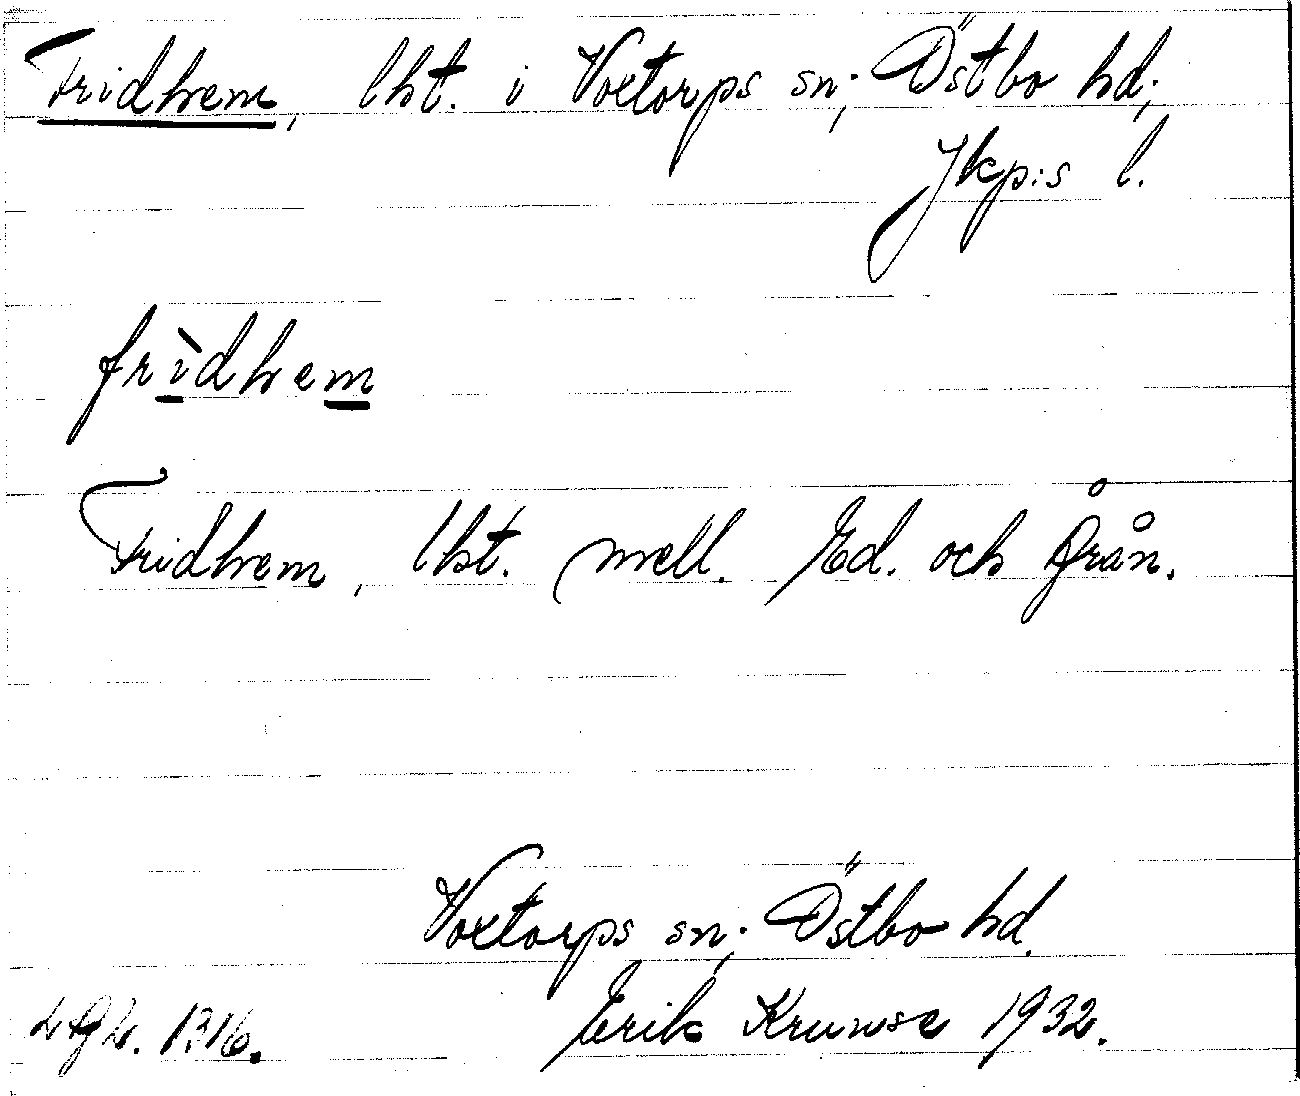 Fridhem, lht. i Voxtorps sn; Östbo hd;
Jkp:s l.
frìdhem
Fridhem, lht. mell. Ed. och Grån.
Voxtorps sn; Östbo hd.
1316. Erik Krumse 1932.